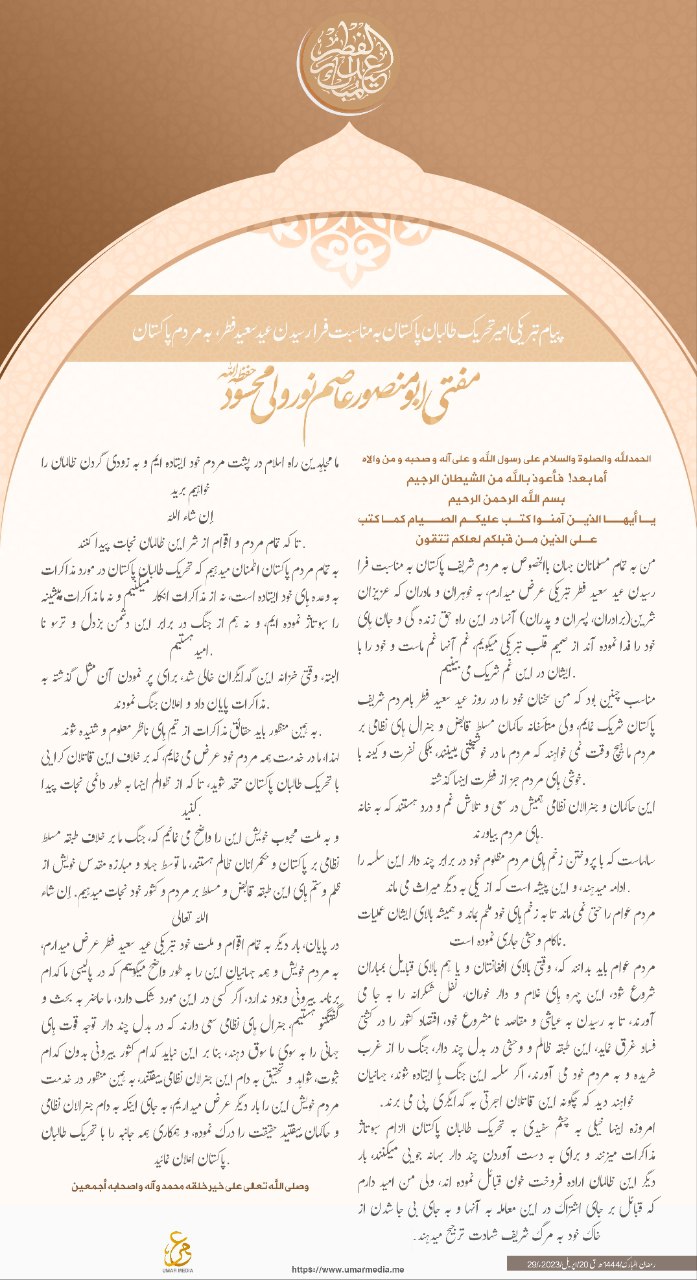 عيد الفطر مبارك
پیام تبریکی امیر تحریک طالبان پاکستان به مناسبت فرا رسیدن عید سعید فطر، به مردم پاکستان
مفتی ابو منصور عاصم نور ولی محسود حفظه الله
الحمدلله والصلوة والسلام علی رسول الله و علی آله و صحبه و من والاه
أما بعد! فأعوذ بالله من الشیطان الرجیم
بسم الله الرحمن الرحیم
یـا أیـهـا الذیـن آمنـوا کتـب علیکـم الصـیـام کمـا کتب
علـی الذین مـن قبلکم لعلکم تتقون
من به تمام مسلمانان جهان باالخصوص به مردم شریف پاکستان به مناسبت فرا
رسیدن عید سعید فطر تبریکی عرض میدارم، به خوهران و مادران که عزیزان
شرین(برادران، پسران و پدران) آنها در این راه حق زنده گی و جان های
خود را فدا نموده آند از صمیم قلب تبریکی میگویم، غم آنها غم ماست و خود را با
ایشان در این غم شریک می بینیم.
مناسب چنین بود که من سخنان خود را در روز عید سعید فطر بامردم شریف
پاکستان شریک نمایم، ولی متأسفانه حاکمان مسلط قابض و جنرال های نظامی بر
مردم ما هیچ وقت نمی خواهند که مردم ما در خوشبختی ببینند، بلکی نفرت و کینه با
خوشی های مردم جز از فطرت اینها گذشته.
این حاکمان و جنرالان نظامی همیش در سعی و تلاش غم و درد هستند که به خانه
های مردم بیاورند.
سالهاست که با پروختن زخم های مردم مظلوم خود در برابر چند دالر این سلسه را
ادامه میدهند، و این پیشه است که از یکی به دیگر میراث می ماند.
مردم عوام را حتی نمی ماند تا به زخم های خود ملهم بماند و همیشه بالای ایشان عملیات
ناکام وحشی جاری نموده است.
مردم عوام باید بدانند که، وقتی بالای افغانستان و یا هم بالای قبایل بمباران
شروع شود، این چهره های غلام و دالر خوران، نفل شکرانه را به جا می
آورند، تا به رسیدن به عیاشی و مقاصد نا مشروع خود، اقتصاد کشور را در کشتی
فساد غرق نماید، این طبقه ظالم و وحشی در بدل چند دالر، جنگ را از غرب
خریده و به مردم خود می آورند، اگر سلسه این جنگ ها ایتاده شوند، جهانیان
خواهند دید که چگونه این قاتلان اجرتی به گدایگری پی می برند.
امروزه اینها خیلی به چشم سفیدی به تحریک طالبان پاکستان الزام سبوتاژ
مذاکرات میزنند و برای به دست آوردن چند دالر بهانه جویی میکنند، بار
دیگر این ظالمان اراده فروخت خون قبائل نموده اند، ولی من امید دارم
که قبائل بر جای اشتراک در این معامله به آنها و به جای بی جا شدن از
خاک خود به مرگ شریف شهادت ترجیح میدهند.
ما مجاهدین راه اسلام در پشت مردم خود ایتاده ایم و به زودی گردن ظالمان را
خواهیم برید
إن شاء الله
تا که تمام مردم و اقوام از شر این ظالمان نجات پیدا کنند.
به تمام مردم پاکستان اطمنان میدهیم که تحریک طالبان پاکستان در مورد مذاکرات
به وعده های خود ایتاده است، نه از مذاکرات انکار میکنیم و نه ما مذاکرات پیشینه
را سبوتاژ نموده ایم، و نه هم از جنگ در برابر این دشمن بزدل و ترسو نا
امید هستیم.
البته، وقتی خزانه این گدایگران خالی شد، برای پر نمودن آن مثل گذشته به
مذاکرات پایان داد و اعلان جنگ نمودند.
به همین منظور باید حقائق مذاکرات از تیم های ناظر معلوم و شنیده شوند.
لهذا، ما در خدمت همه مردم خود عرض می نمایم، که بر خلاف این قاتلان کرایی
با تحریک طالبان پاکستان متحد شوید، تا که از ظوالم اینها به طور دائمی نجات پیدا
کنید.
و به ملت محبوب خویش این را واضح می نمائیم که، جنگ ما بر خلاف طبقه مسلط
نظامی بر پاکستان و حکمرانان ظالم هستند، ما توسط جهاد و مبارزه مقدس خویش از
ظلم و ستم های این طبقه قابض و مسلط بر مردم و کشور خود نجات میدهیم. إن شاء
الله تعالی
در پایان، بار دیگر به تمام اقوام و ملت خود تبریکی عید سعید فطر عرض میدارم،
به مردم خویش و همه جهانیان این را به طور واضح میگوییم که در پالیسی ما کدام
برنامه بیرونی وجود ندارد، اگر کسی در این مورد شک دارد، ما حاضر به بحث و
گفتگو هستیم، جنرال های نظامی سعی دارند که در بدل چند دالر توجه قوت های
جهانی را به سوی ما سوق دهند، بنا بر این نباید کدام کشور بیرونی بدون کدام
ثبوت، شواهد و تحقیق به دام این جنرلان نظامی بیفتند، به همین منظور در خدمت
مردم خویش این را بار دیگر عرض میداریم، به جای اینکه به دام جنرلان نظامی
و حاکمان بیفتید حقیقت را درک نموده، و همکاری همه جانبه را با تحریک طالبان
پاکستان اعلان نمائید.
وصلی الله تعلی علی خیر خلقه محمد وآله واصحابه أجمعین
UMAR MEDIA
https://www.umarmedia.me
29/رمضان المبارک/1444ه ق 20/اپریل/2023